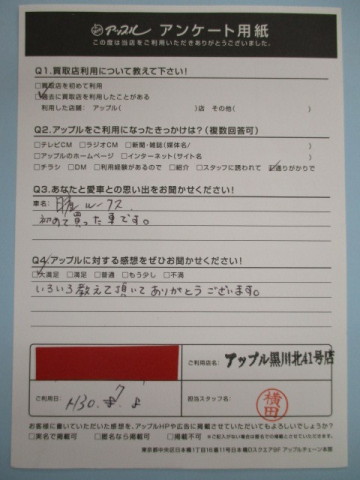 アップル アンケート用紙
この度は当店をご利用いただきありがとうございました。
Q1.買取店利用について教えて下さい!
□買取店を初めて利用
□過去に買取店を利用したことがある
利用した店舗: アップル( )店 その他( )
Q2.アップルをご利用になったきっかけは?(複数回答可)
□テレビCM □ラジオCM □新聞・雑誌(媒体名/ )
□アップルのホームページ □インターネット(サイト名 )
□チラシ □DM □利用経験があるので □紹介 □スタッフに誘われて □通りがかりで
Q3.あなたと愛車との思い出をお聞かせください!
車名: 日産 ルークス
初めて買った車です。
Q4.アップルに対する感想をぜひお聞かせください!
□大満足 □満足 □普通 □もう少し □不満
いろいろ教えて頂いてありがとうございます。
ご利用店名: アップル黒川北41号店
ご利用日: H30. 7.
担当スタッフ名: 横田
お客様に書いていただいた感想を、アップルHPや広告に掲載させていただいてもよろしいでしょうか?
□実名で掲載可 □匿名なら掲載可 □掲載不可 ※ご記入がない場合は匿名での掲載とさせていただきます。
東京都中央区日本橋1丁目16番11号日本橋DスクエアBF アップルチェーン本部